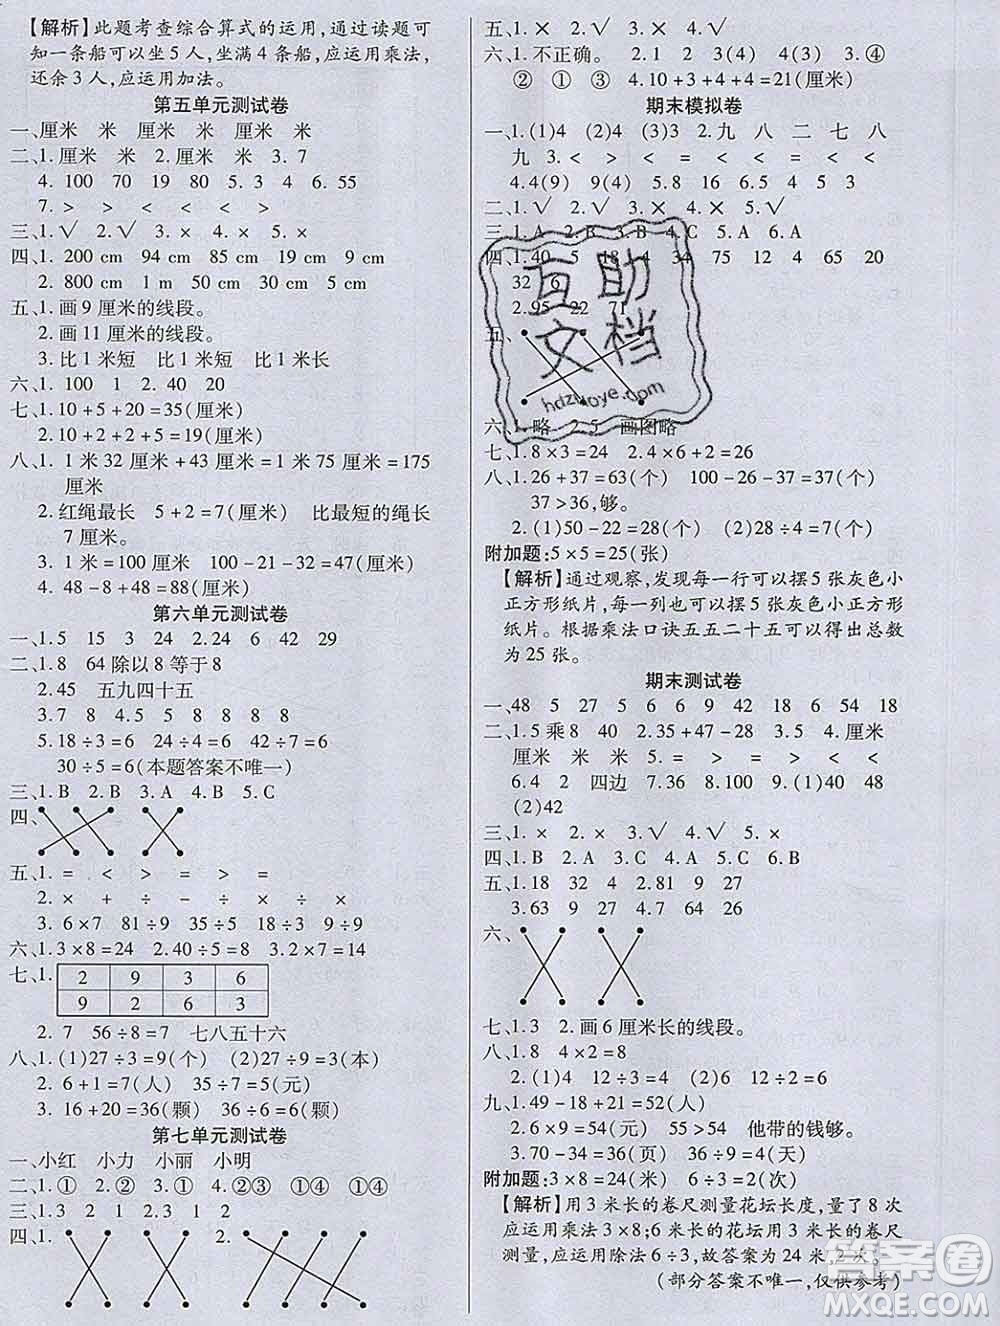 【解析】此题考查综合算式的运用,通过读题可
知一条船可以坐5人,坐满4条船,应运用乘法,
还余3人,应运用加法。
第五单元测试卷
一、厘米 米 厘米 厘米 厘米 米
二、1.厘米 米 2.厘米 米 3.7
4. 100 70 19 80 5. 3 4 6. 55
7. > > < < < >
三、1.√ 2.× 3.√ 4.√ 5.×
四、1. 200 cm 94 cm 85 cm 26 cm
2. 800 cm 1 cm 54 cm 31 cm
五、1.画9厘米的线段。
2.画11厘米的线段。
3.比1米短 比1米短 比1米长
六、1.100 1 2.40 20
七、1.10+5+20=35(厘米)
2.10+2+2+5=19(厘米)
八、1. 1米32厘米+43厘米=1米75厘米=175
厘米
2.红绳最长 5+2=7(厘米) 比最短的绳长
7厘米。
3. 1米=100厘米 100-22-31=47(厘米)
4. 48-8+48=88(厘米)
第六单元测试卷
一、1.5 15 3 24 2.24 6 42 29
二、1.8 64除以8等于8
2.45 五九四十五
3.7 8 4.5 5 8 8 8
5.18÷3=6 24÷4=6 42÷7=6
30÷5=6(本题答案不唯一)
三、1.B 2.B 3.A 4.B 5.C
四、
五、1.= < = > = >
2.× ÷ - ÷ + ÷
3.6×7 81÷9 35÷5 18÷3 9÷9
六、1.3×8=24 2.40÷5=8 3.2×7=14
七、1. 2 9 3 6
9 2 6 3
2. 7 56÷8=7 七八五十六
八、1. (1)27÷3=9(个) (2)27÷9=3(本)
2. 6+1=7(人) 35÷7=5(元)
3. 16+20=36(颗) 36÷6=6(颗)
第七单元测试卷
一、小红 小力 小丽 小明
二、1.① 2.② 3.① 4.②③ ①④ ①④
三、1.3 1 2 2.3 1 2
四、1. 2.
五、1.√ 2.× 3.× 4.√
六、1.不正确。 2.1 4 2 3 3.③ ④
② ① ③ 4.10+3+4+4=21(厘米)
期末模拟卷
一、1.(1)4 (2)4 (3)3 2.九 八 二 七 八
九 3.< < = < < <
4.4(9) 9(4) 5.8 16 6.5 4 4
二、1.√ 2.√ 3.√ 4.× 5.√
三、1.A 2.B 3.B 4.C 5.A 6.A
四、1.40 5 18 4 34 75 64 24
32 6
2.95 22 71
五、
互助
文档
hdzuoye.com
六、1.略 2.5 画图略
七、1.8×3=24 2.4×6+2=26
八、1.26+37=63(个) 100-26-37=37(个)
37>36,够。
2.(1)50-22=28(个) (2)28÷4=7(个)
附加题:5×5=25(张)
【解析】通过观察,发现每一行可以摆5张灰色小
正方形纸片,每一列也可以摆5张灰色小正方形
纸片。根据乘法口诀五五二十五可以得出总数
为25张。
期末测试卷
一、48 5 27 5 6 6 9 42 18 6 54 18
二、1.5乘8 40 2.35+47-28 3.5 4.厘米
厘米 米 米 5.= > < < < >
6.4 2 四边 7.36 8.100 9.(1)40 48
(2)42
三、1.× 2.× 3.√ 4.√ 5.×
四、1.B 2.A 3.B 4.A 5.C 6.B
五、1.18 32 4 2.81 9 27
3.63 9 27 4.7 64 24
六、
七、1.3 2.画6厘米长的线段。
八、1.8 4×2=8
2.(1)4 12÷3=4 (2)6 12÷2=6
九、1.49-18+21=52(人)
2.6×9=54(元) 55>54 他带的钱够。
3.70-34=36(页) 36÷9=4(页)
附加题:3×8=24(米) 6÷3=2(次)
【解析】用3米长的卷尺测量花坛长度,量了8次
应运用乘法3×8;6米长的花坛用3米长的卷尺
测量,应运用除法6÷3,故答案为24米,2次。
(部分答案不唯一,仅供参考)
答案圈
MXQE.COM